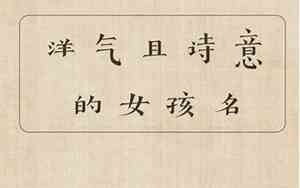 洋气且诗意
的女孩名